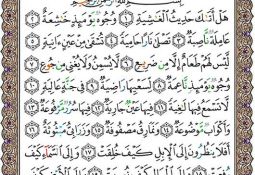 بِسْمِ اللَّهِ الرَّحْمَٰنِ الرَّحِيمِ
هَلْ أَتَىٰكَ حَدِيثُ الْغَٰشِيَةِ ١ وُجُوهٌ يَوْمَئِذٍ خَٰشِعَةٌ ٢
عَامِلَةٌ نَّاصِبَةٌ ٣ تَصْلَىٰ نَارًا حَامِيَةً ٤ تُسْقَىٰ مِنْ عَيْنٍ ءَانِيَةٍ ٥
لَّيْسَ لَهُمْ طَعَامٌ إِلَّا مِن ضَرِيعٍ ٦ لَّا يُسْمِنُ وَلَا يُغْنِي مِن جُوعٍ ٧
وُجُوهٌ يَوْمَئِذٍ نَّاعِمَةٌ ٨ لِّسَعْيِهَا رَاضِيَةٌ ٩ فِي جَنَّةٍ عَالِيَةٍ ١٠
لَّا تَسْمَعُ فِيهَا لَٰغِيَةً ١١ فِيهَا عَيْنٌ جَارِيَةٌ ١٢ فِيهَا سُرُرٌ مَّرْفُوعَةٌ ١٣
وَأَكْوَابٌ مَّوْضُوعَةٌ ١٤ وَنَمَارِقُ مَصْفُوفَةٌ ١٥ وَزَرَابِيُّ مَبْثُوثَةٌ ١٦
أَفَلَا يَنظُرُونَ إِلَى الْإِبِلِ كَيْفَ خُلِقَتْ ١٧ وَإِلَى السَّمَاءِ كَيْفَ